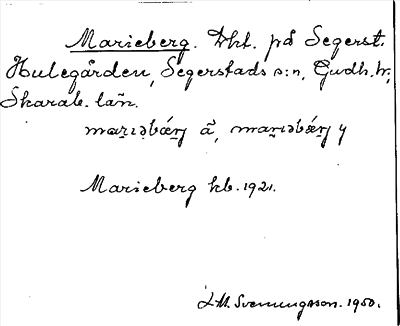 Marieberg. Lht. på Segerst.
Hulegården, Segerstads s:n, Gudh. hr,
Skarab. län.
marıəbǽrj ä, marıəbǽrj y
Marieberg kb. 1921.
L.M. Svenungsson. 1950.